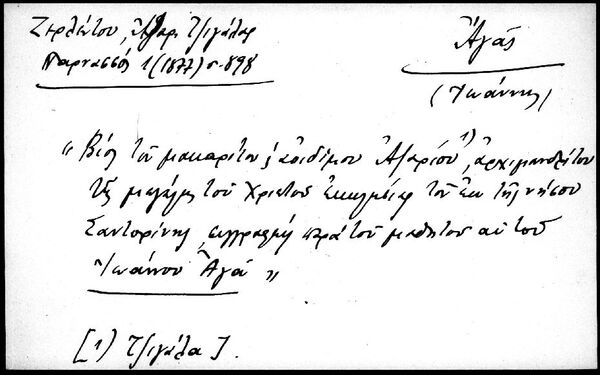 Ζερλέντου, Ἀζαρ. Τζιγάλαρ
Παρνασσός 1 (1877) σ. 898
Ἀγᾶς
(Ἰωάννης)
" Βίος τοῦ μακαρίτου & ἀοιδίμου Ἀζαρίου 1), ἀρχιμανδρίτου
τῆς μεγάλης τοῦ Χριστοῦ ἐκκλησίας τοῦ ἐκ τῆς νήσου
Σαντορίνης, συγγραφείς παρὰ τοῦ μαθητοῦ αὐτοῦ
Ἰωάννου Ἀγᾶ "
[1) Τζιγάλα].